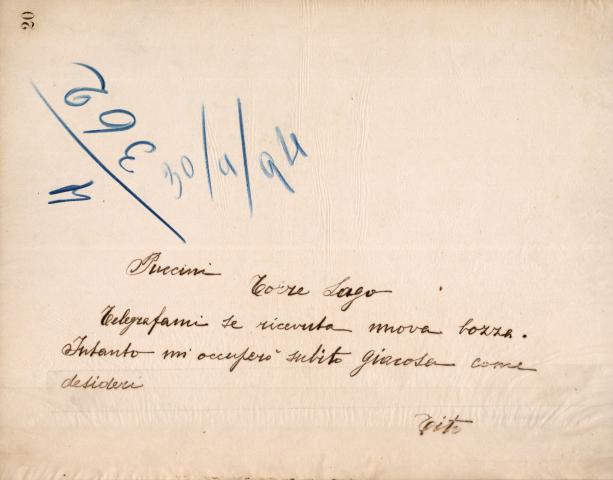 20
362
4
30/9/94
Puccini
Torre Lago
Telegrafami se ricevuta nuova bozza.
Intanto mi occuperò subito Giacosa come
desideri
Tito